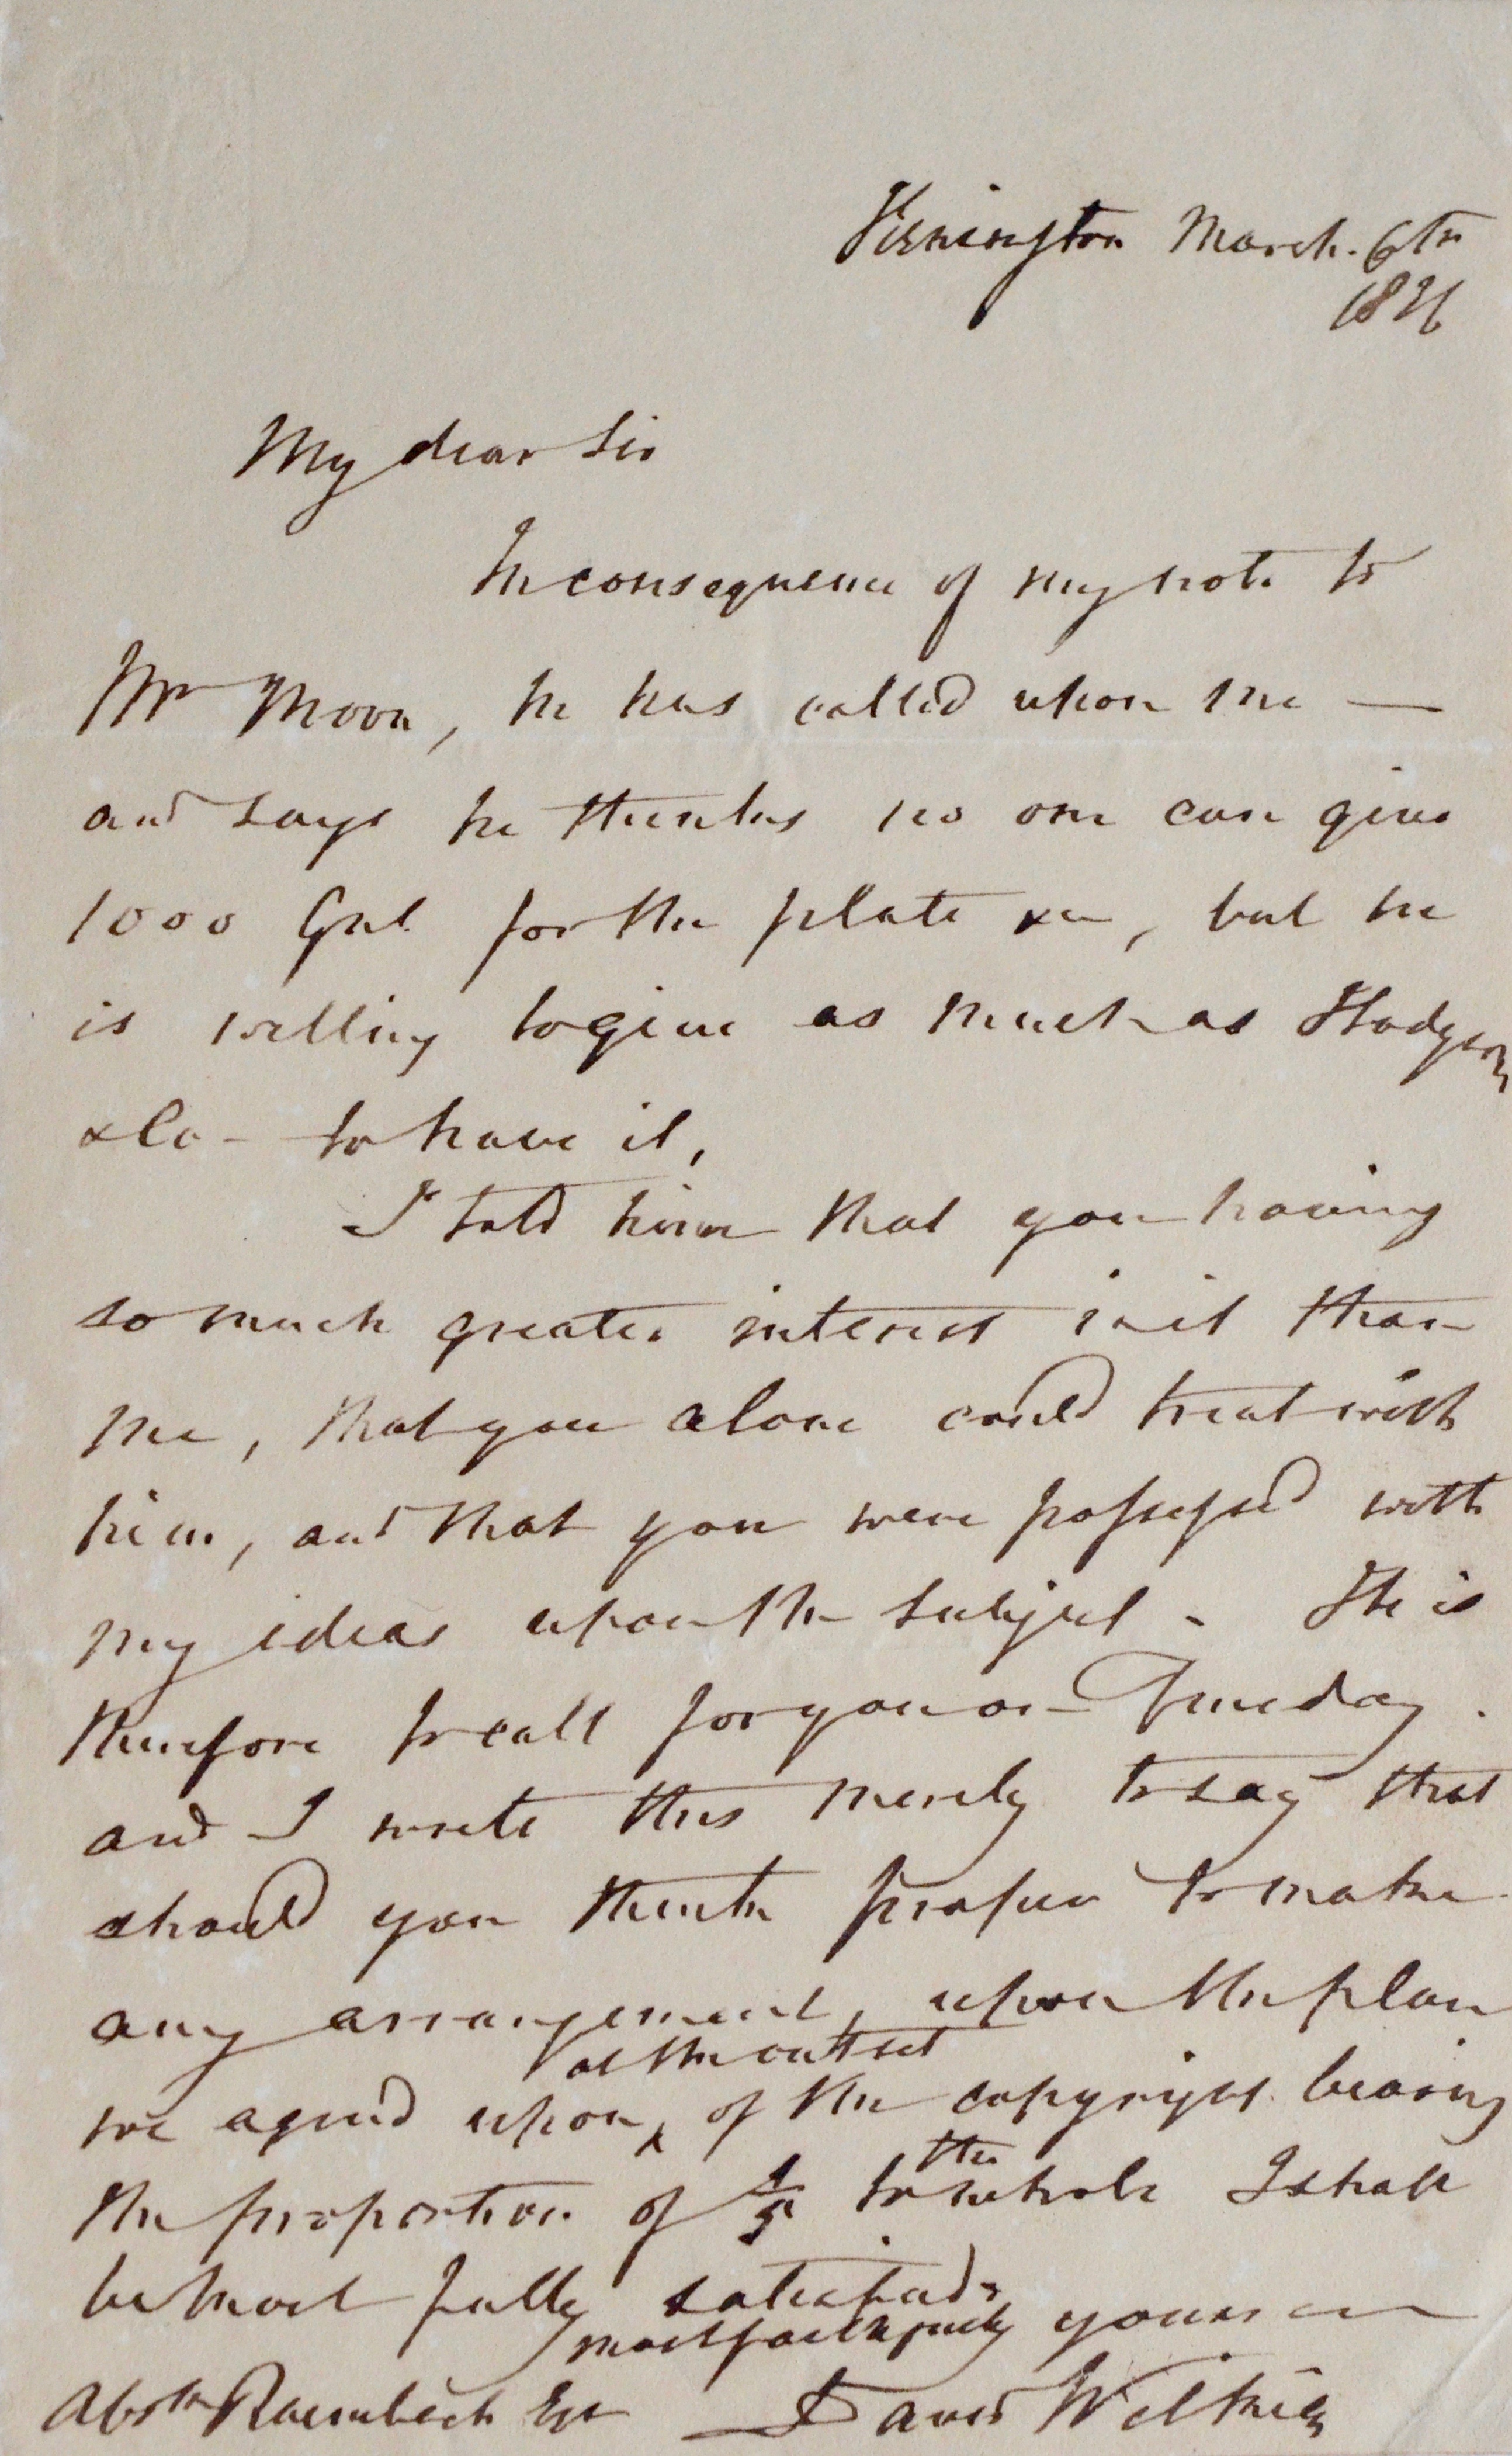 Kensington March. 6th
1836
My dear Sir
In consequence of my note to
Mr Moon, he has called upon me —
and says he thinks no one can give
1000 Gns. for the plate &c, but he
is willing to give as much as Hodgson
& Co - to have it,
I told him that you having
so much greater interest in it than
me, that you alone could treat with
him, and that you were possessed with
my ideas upon the subject - He is
therefore to call for you on Tuesday.
and I write this merely to say that
should you think proper to make
any arrangement, upon the plan
at the outset
we agreed upon, ^ of the copyright bearing
the
the proportion of 1/5 to whole I shall
be most fully satisfied -
most faithfully yours
Abrm Raimbach Esqr David Wilkie